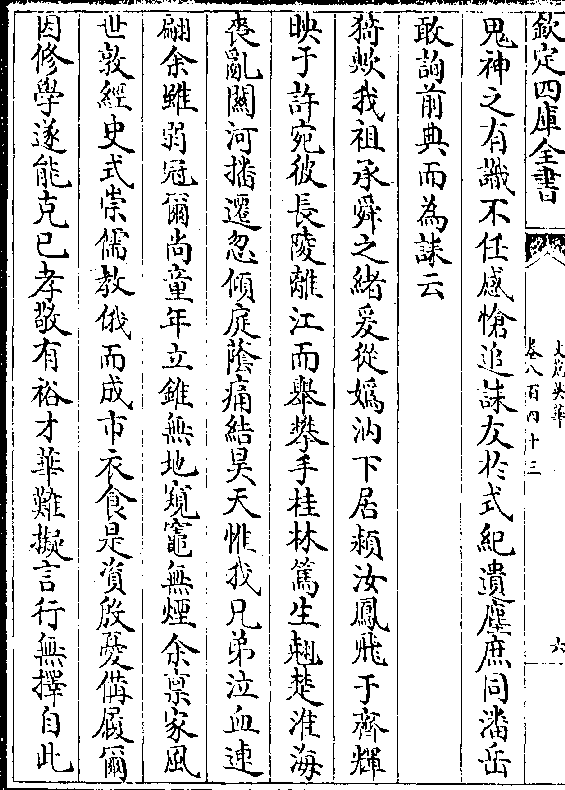 欽定四庫全書
文苑英華
卷八百四十三
六
鬼神之有識不任感愴追誄友於式紀遺塵庶同潘岳
敢詢前典而為誄云
猗歟我祖承舜之緒爰從嬀汭下居潁汝鳳飛于齊輝
映于許宛彼長陵離江而舉攀手桂林篤生翹楚淮海
喪亂關河播遷忽傾庭蔭痛結昊天惟我兄弟泣血連
翩余雖弱冠爾尚童年立錐無地窺竈無煙余禀家風
世敦經史式崇儒教俄而成市衣食是資殷憂備履爾
因修學遂能克已孝敬有裕才華難擬言行無擇自此